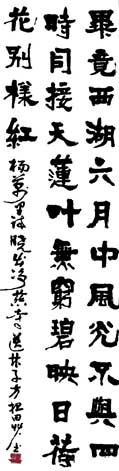 畢竟西湖六月中風光不與四
時同接天蓮葉無窮碧映日荷
花别樣紅 楊萬里詩曉出净慈寺送林子方